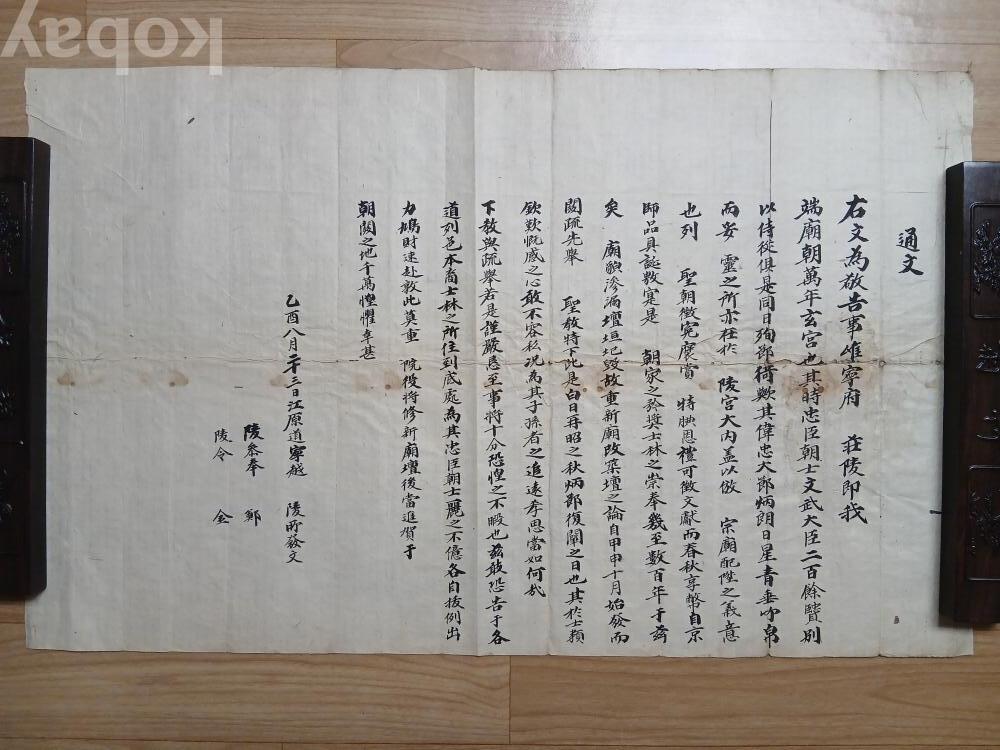 通文
右文為敬告事惟寧府 莊陵即我
端廟朝萬年玄宮也其時忠臣朝士文武大臣二百餘賢別
以侍從俱是同日殉節猗歟其偉忠大節炳朗日星青垂竹帛
而安 靈之所亦在於 陵宮大內盖以倣 宗廟配陞之義意
也列 聖朝徵寃褒賞 特腆恩禮可徵文獻而春秋享幣自京
師品具誌數寔是 朝家之於奬士林之崇奉幾至數百年于玆
矣 廟貌滲漏壇垣圮毀故重新廟改築壇之論自甲申十月始發而
閎疏先舉 聖教特下此是白日再昭之秋炳節復闡之日也其於士類
欽歎慨感之心敢不容私况為其子孫者之追遠孝思當如何哉
下教與疏舉若是謹嚴忌至事將十分恐惶之不暇也玆敢恐告于各
道列邑本裔士林之所住到底處為其忠臣朝士麗之不億各自拔例出
力鳩財速赴敦此莫重 院役將修新廟壇後當進賀于
朝闕之地千萬惶懼幸甚
乙酉八月二十三日江原道寧越 陵所發文
陵叅奉 鄭
陵令 金
kobay